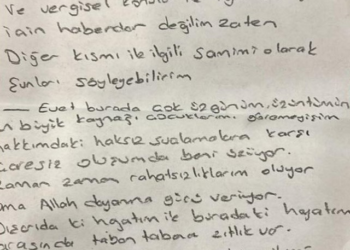 Ve vergisel
için haberdar değilim zaten
Diğer kısmı ile ilgili samimi olarak
Şunları söyleyebilirim
— Evet burada çok üzgünüm, üzüntümün
n büyük kaynağı çocuklarım. göremeyişim
hakkımdaki haksız suçlamalara karşı
çaresiz oluşumda beni üzüyor.
zaman zaman rahatsızlıklarım oluyor
ma Allah dayanma gücü veriyor.
Dışarıda ki hayatım ile buradaki hayatım
arasında taban tabana zıtlık var.